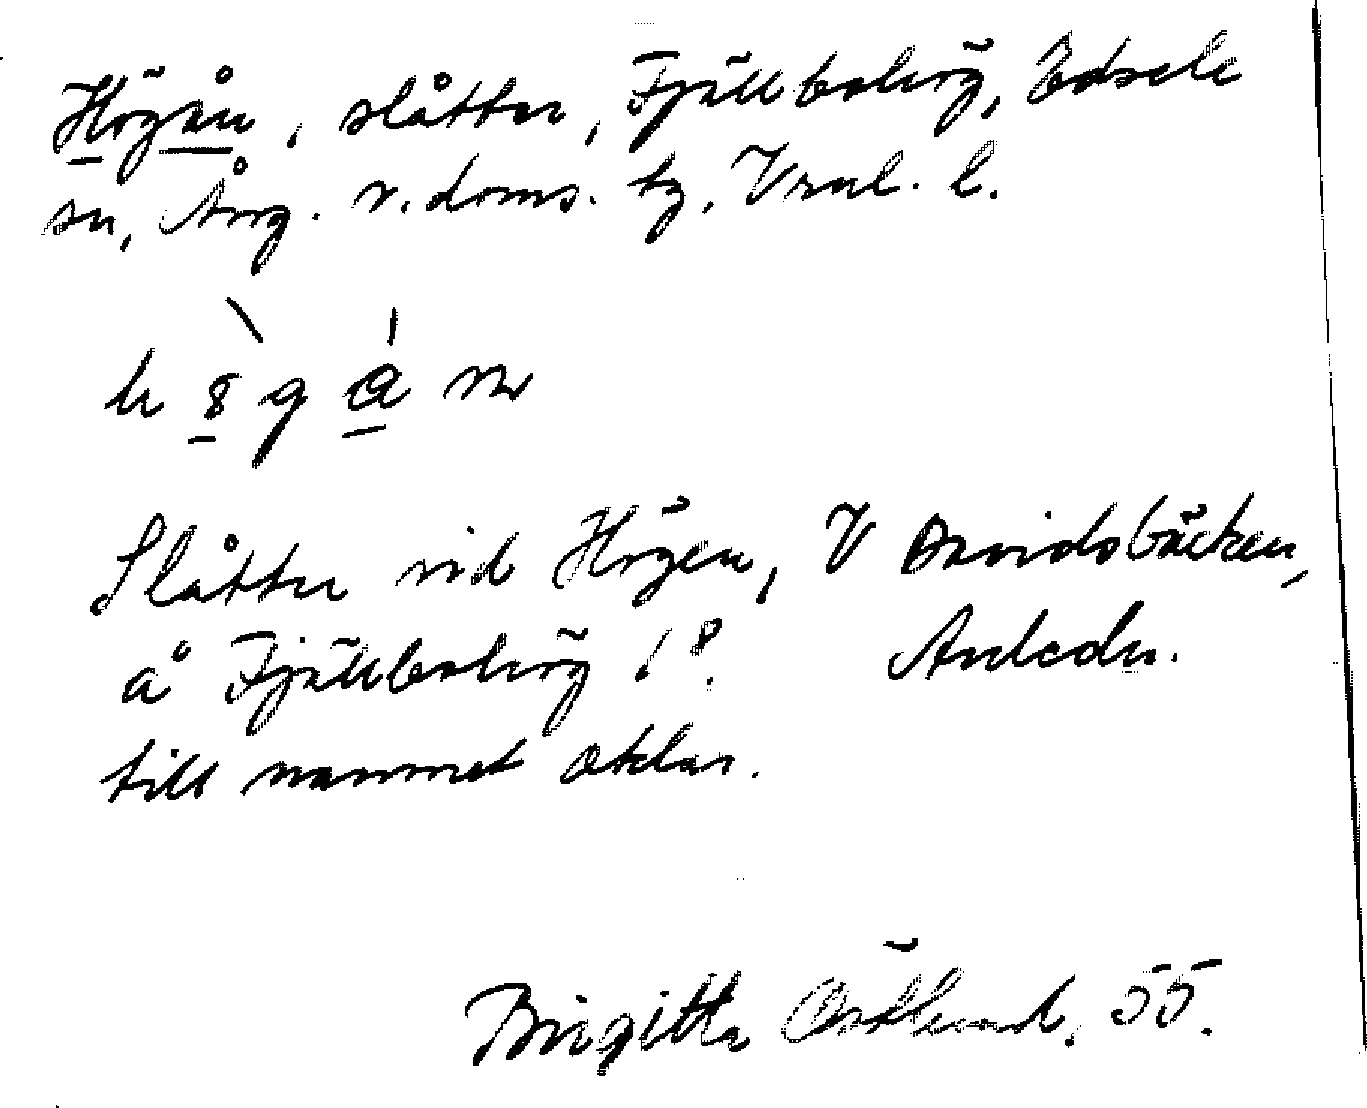 Högån, slåtter, Fjällbohög, Edsele
sn, Ång. v. doms. tg, Vrnl. l.
h 8 g a n
Slåtter vid Högen, V Davidsbäcken,
å Fjällbohög 1⁸. Anledn.
till namnet oklar.
Birgitta Östlund. 55.